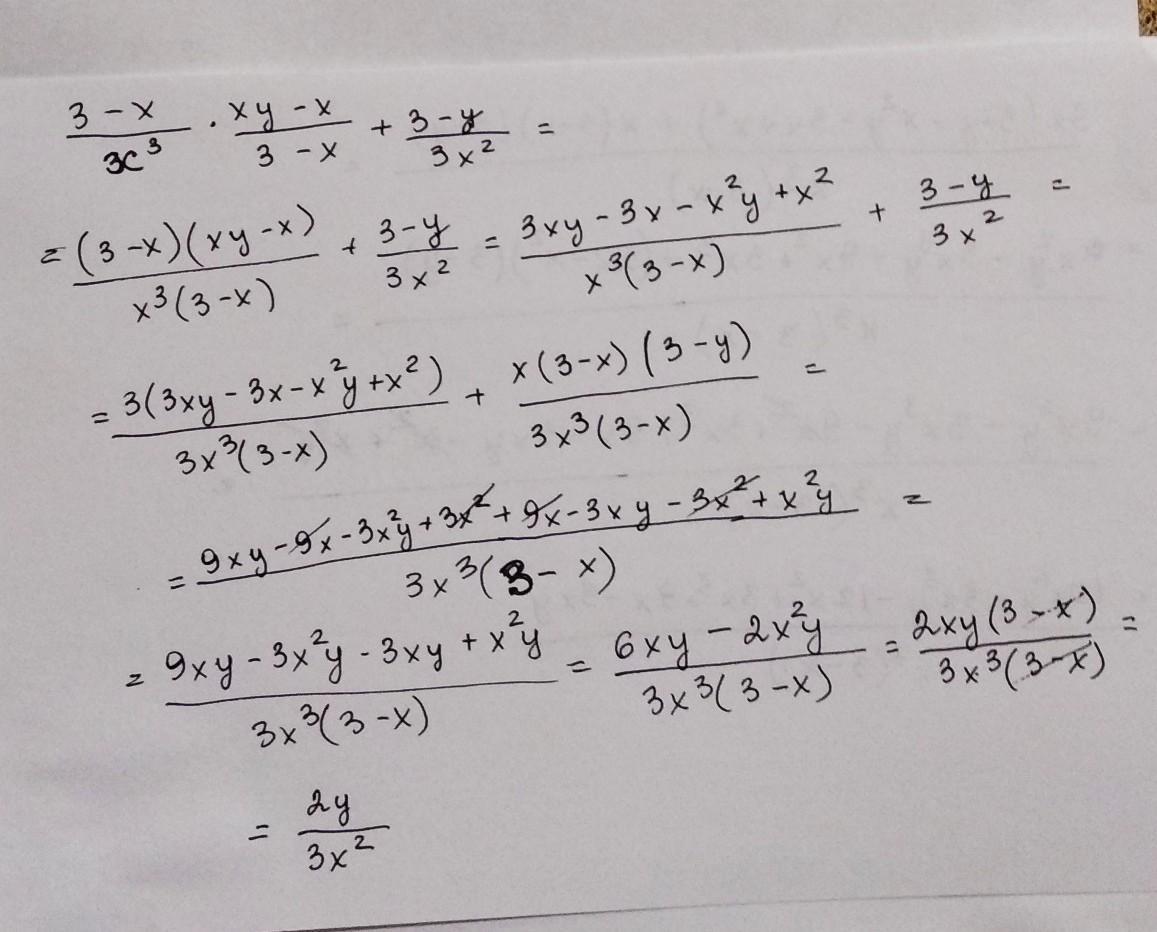 (3 - x)/(x³) · (xy - x)/(3 - x) + (3 - y)/(3x²) =
= ((3-x)(xy-x))/(x³(3-x)) + (3-y)/(3x²) = (3xy - 3x - x²y + x²)/(x³(3-x)) + (3-y)/(3x²) =
= (3(3xy - 3x - x²y + x²))/(3x³(3-x)) + (x(3-x)(3-y))/(3x³(3-x)) =
= (9xy - 9x - 3x²y + 3x² + 9x - 3xy - 3x² + x²y)/(3x³(3-x)) =
= (9xy - 3x²y - 3xy + x²y)/(3x³(3-x)) = (6xy - 2x²y)/(3x³(3-x)) = (2xy(3-x))/(3x³(3-x)) =
= (2y)/(3x²)